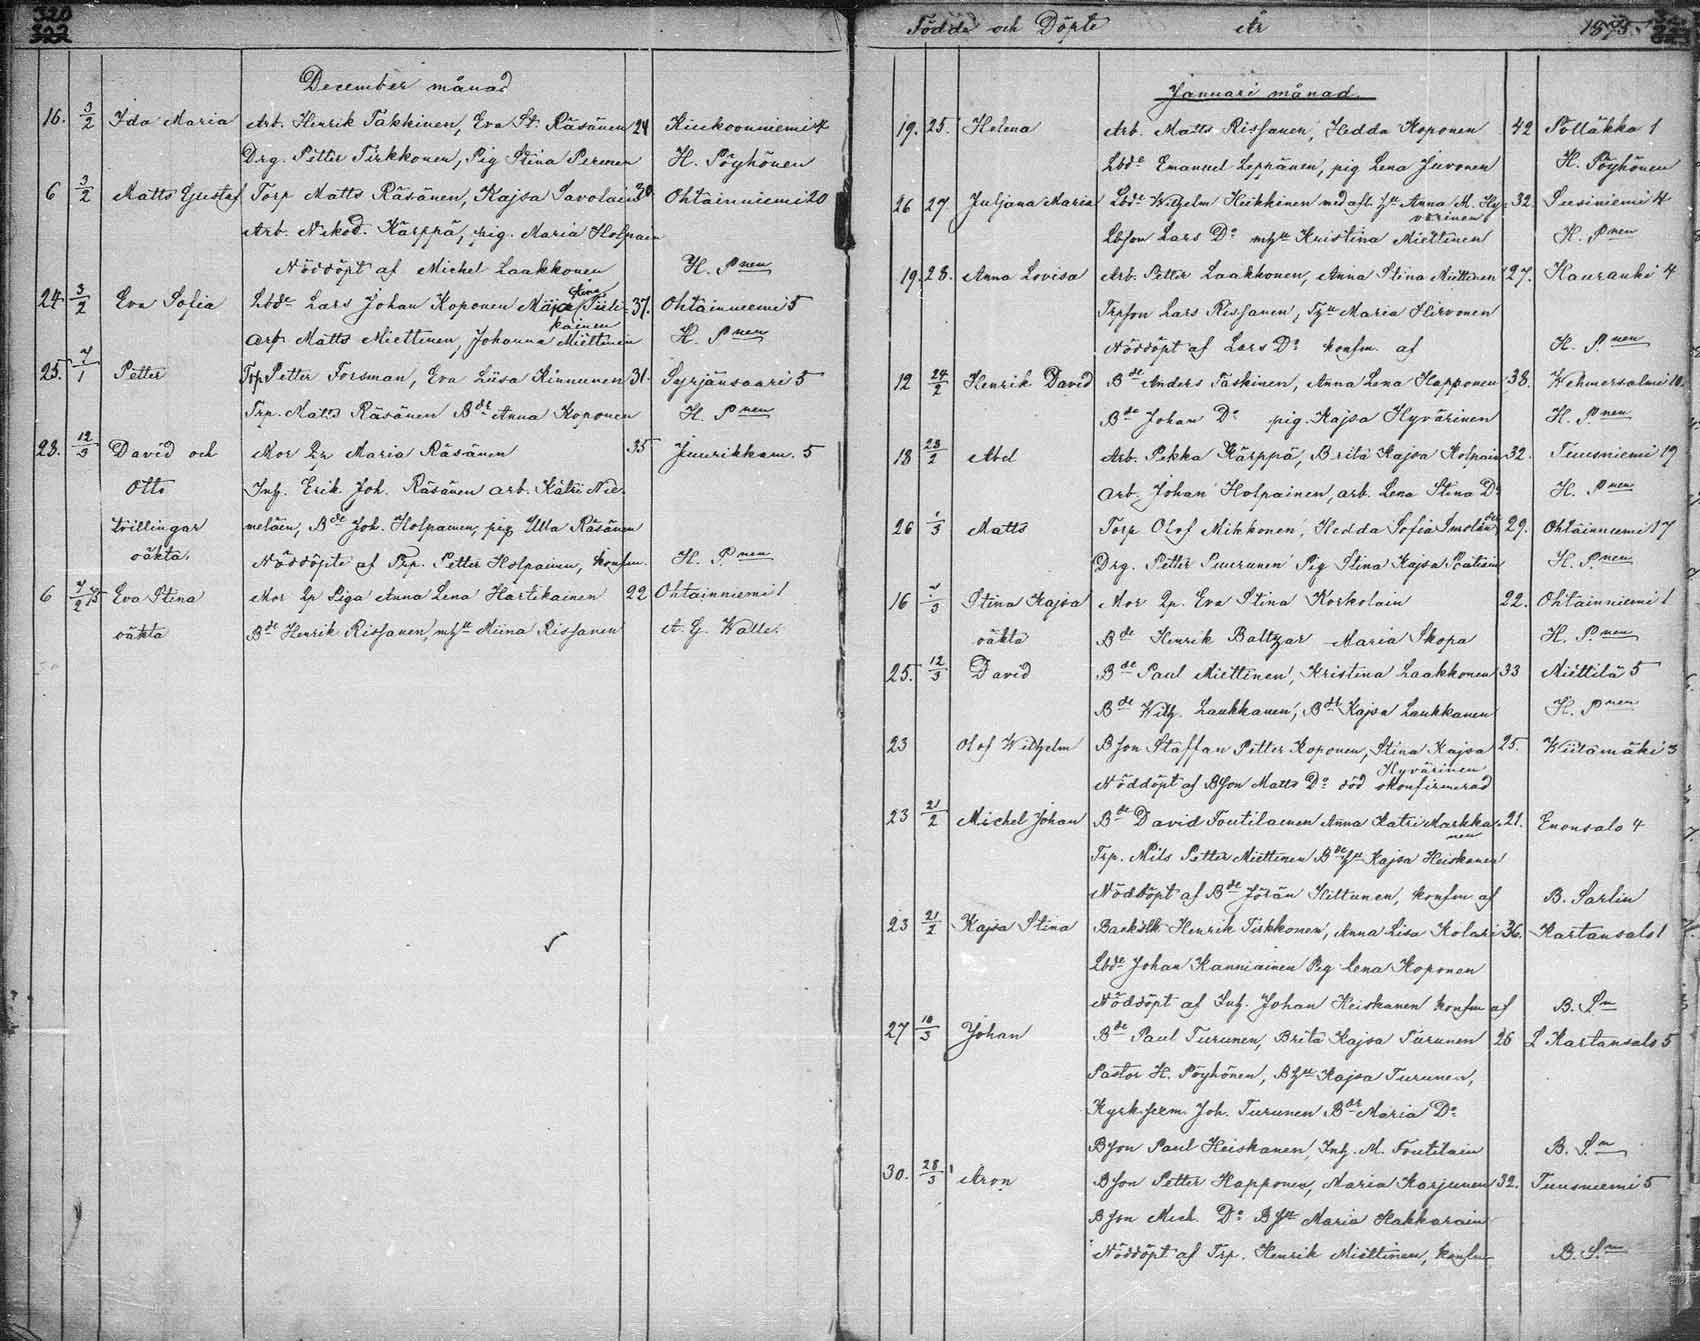 320
322
December månad
16. 3/2 Ida Maria Arb. Henrik Takkinen, Eva St. Räsänen 24 Kiukoonniemi 4
Drg. Petter Tirkkonen, Pig Stina Permen H. Pöyhönen
6 3/2 Matts Gustaf Torp Matts Räsänen, Kajsa Savolain 30. Ohtainniemi 20
Arb. Nikod. Kärppä, pig. Maria Holpain
Nöddöpt af Michel Laakkonen H. Pnen
24 3/2 Eva Sofia Lbde Lars Johan Koponen Maja Stina Tiili- 37. Ohtainniemi 5
kainen
Arb Matts Miettinen, Johanna Miettinen H. Pnen
25. 7/1 Petter Trp Petter Forsman, Eva Liisa Kinnunen 31. Syrjänsaari 5
Trp. Matts Räsänen Bde Anna Koponen H. Pnen
28. 12/3 David och Mor Maria Räsänen 35 Juurikkam. 5
Otto Inh. Erik Joh. Räsänen arb. Katri Nie-
tvillingar meläin, Bde Joh. Holpainen, pig Ulla Räsänen
oäkta. Nöddöpte af Trp. Petter Holpainen, konfm. H. P.nen
6 7/2 75 Eva Stina Mor Lp Piga Anna Lena Hartikainen 22 Ohtainniemi 1
oäkta Bde Henrik Rissanen, mhu Miina Rissanen A. G. Walle.
Födde och Döpte År 1875.
Januari månad.
19. 25. Helena Arb. Matts Rissanen, Hedda Koponen 42 Pölläkkä 1
Lbde Emanuel Leppänen, pig Lena Juvonen H. Pöyhönen
26 27 Juljana Maria Lbde Wilhelm Heikkinen med aft. hu Anna M. Hy- 32. Susiniemi 4
värinen
Lbson Lars Do mhu Kristina Miettinen H. Pnen
19. 28. Anna Lovisa Arb. Petter Laakkonen, Anna Stina Miettinen 27. Hauranki 4
Trpson Lars Rissanen, Thu Maria Hirvonen
Nöddöpt af Lars Do konfm. af H. P.nen
12 24/2 Henrik David Bde Anders Taskinen, Anna Lena Happonen 38. Wehmersalmi 10.
Bde Johan Do pig. Kajsa Hyvärinen H. Pnen
18 28/2 Abel Arb. Pekka Kärppä, Brita Kajsa Holpain 32. Tuusniemi 19
Arb. Johan Holpainen, arb. Lena Stina Do H. Pnen
26 1/3 Matts Torp Olof Mikkonen, Hedda Sofia 29. Ohtainniemi 17
Drg. Petter Puurunen Pig Stina Kajsa H. Pnen
16 /3 Stina Kajsa Mor Lp. Eva Stina Korkolain 22. Ohtainniemi 1
oäkta Bde Henrik Baltzar Maria Skopa H. P.nen
25. 12/3 David Bde Paul Miettinen, Kristina Laakkonen 33 Miettilä 5
Bde Wilh. Laukkanen, Bde Kajsa Laukkanen H. Pnen
23 Olof Wilhelm Bson Staffan Petter Koponen, Stina Kajsa 25. Wiitamäki 3
Hyvärinen
Nöddöpt af Bson Matts Do död okonfirmerad
23 21/2 Michel Johan Bde David Toutilainen Anna Katri Markka- 21. Enonsalo 4
nen
Trp. Nils Petter Miettinen Bde hu Kajsa Heiskanen
Nöddöpt af Bde Jöran Hiltunen, konfm af B. Sarlin
23 21/2 Kajsa Stina Henrik Tirkkonen, Anna Lisa Kolari 36. Kartansalo 1
Lbde Johan Kanniainen Pig Lena Koponen
Nöddöpt af Inh. Johan Heiskanen konfm af B. S.n
27 10/3 Johan Bde Paul Turunen, Brita Kajsa Turunen 26 L Kartansalo 5
Pastor H. Pöyhönen, Bhu Kajsa Turunen,
Kyrk. Joh. Turunen Bde Maria Do
Bson Paul Heiskanen, Inh. M. Toutilain B. S.n
30. 28/3 Aron Bson Petter Happonen, Maria Karjunen 32. Tuusniemi 5
Bson Mich. Do Bhu Maria Hakkarain
Nöddöpt af Trp. Henrik Miettinen, konfm B. S.n